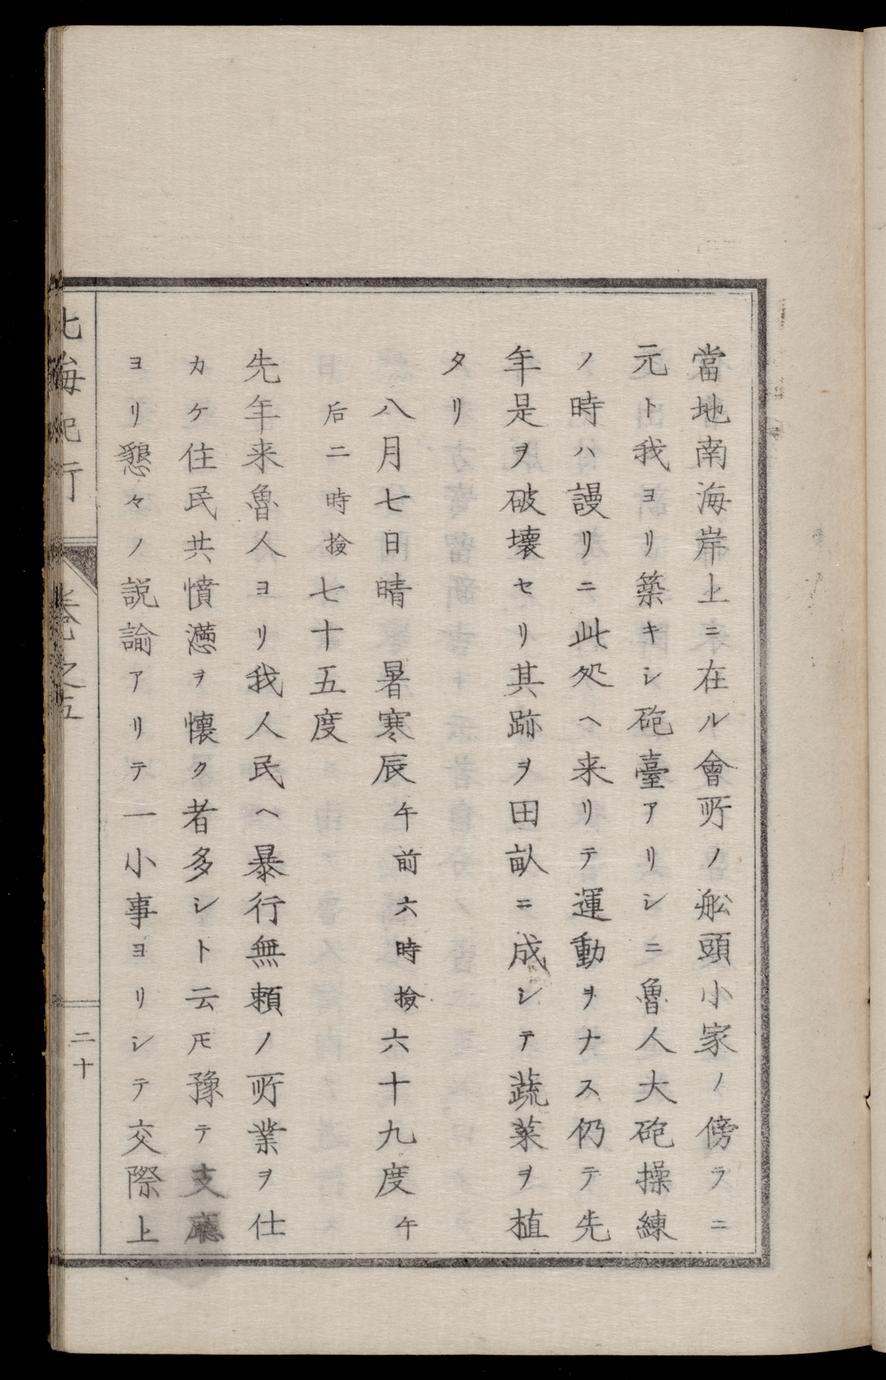 當地南海岸上ニ在ル會所ノ舩頭小家ノ傍ラニ
元ト我ヨリ築キシ砲臺アリシニ魯人大砲操練
ノ時ハ謾リニ此処ヘ来リテ運動ヲナス仍テ先
年是ヲ破壊セリ其跡ヲ田畝ニ成シテ蔬菜ヲ植
タリ
八月七日晴　暑寒辰午前六時撿六十九度午
后二時撿七十五度
先年来魯人ヨリ我人民ヘ暴行無頼ノ所業ヲ仕
カケ住民共憤懣ヲ懐ク者多シト云𪜈豫テ支廳
ヨリ懇々ノ説諭アリテ一小事ヨリシテ交際上
北海紀行　巻之五　二十